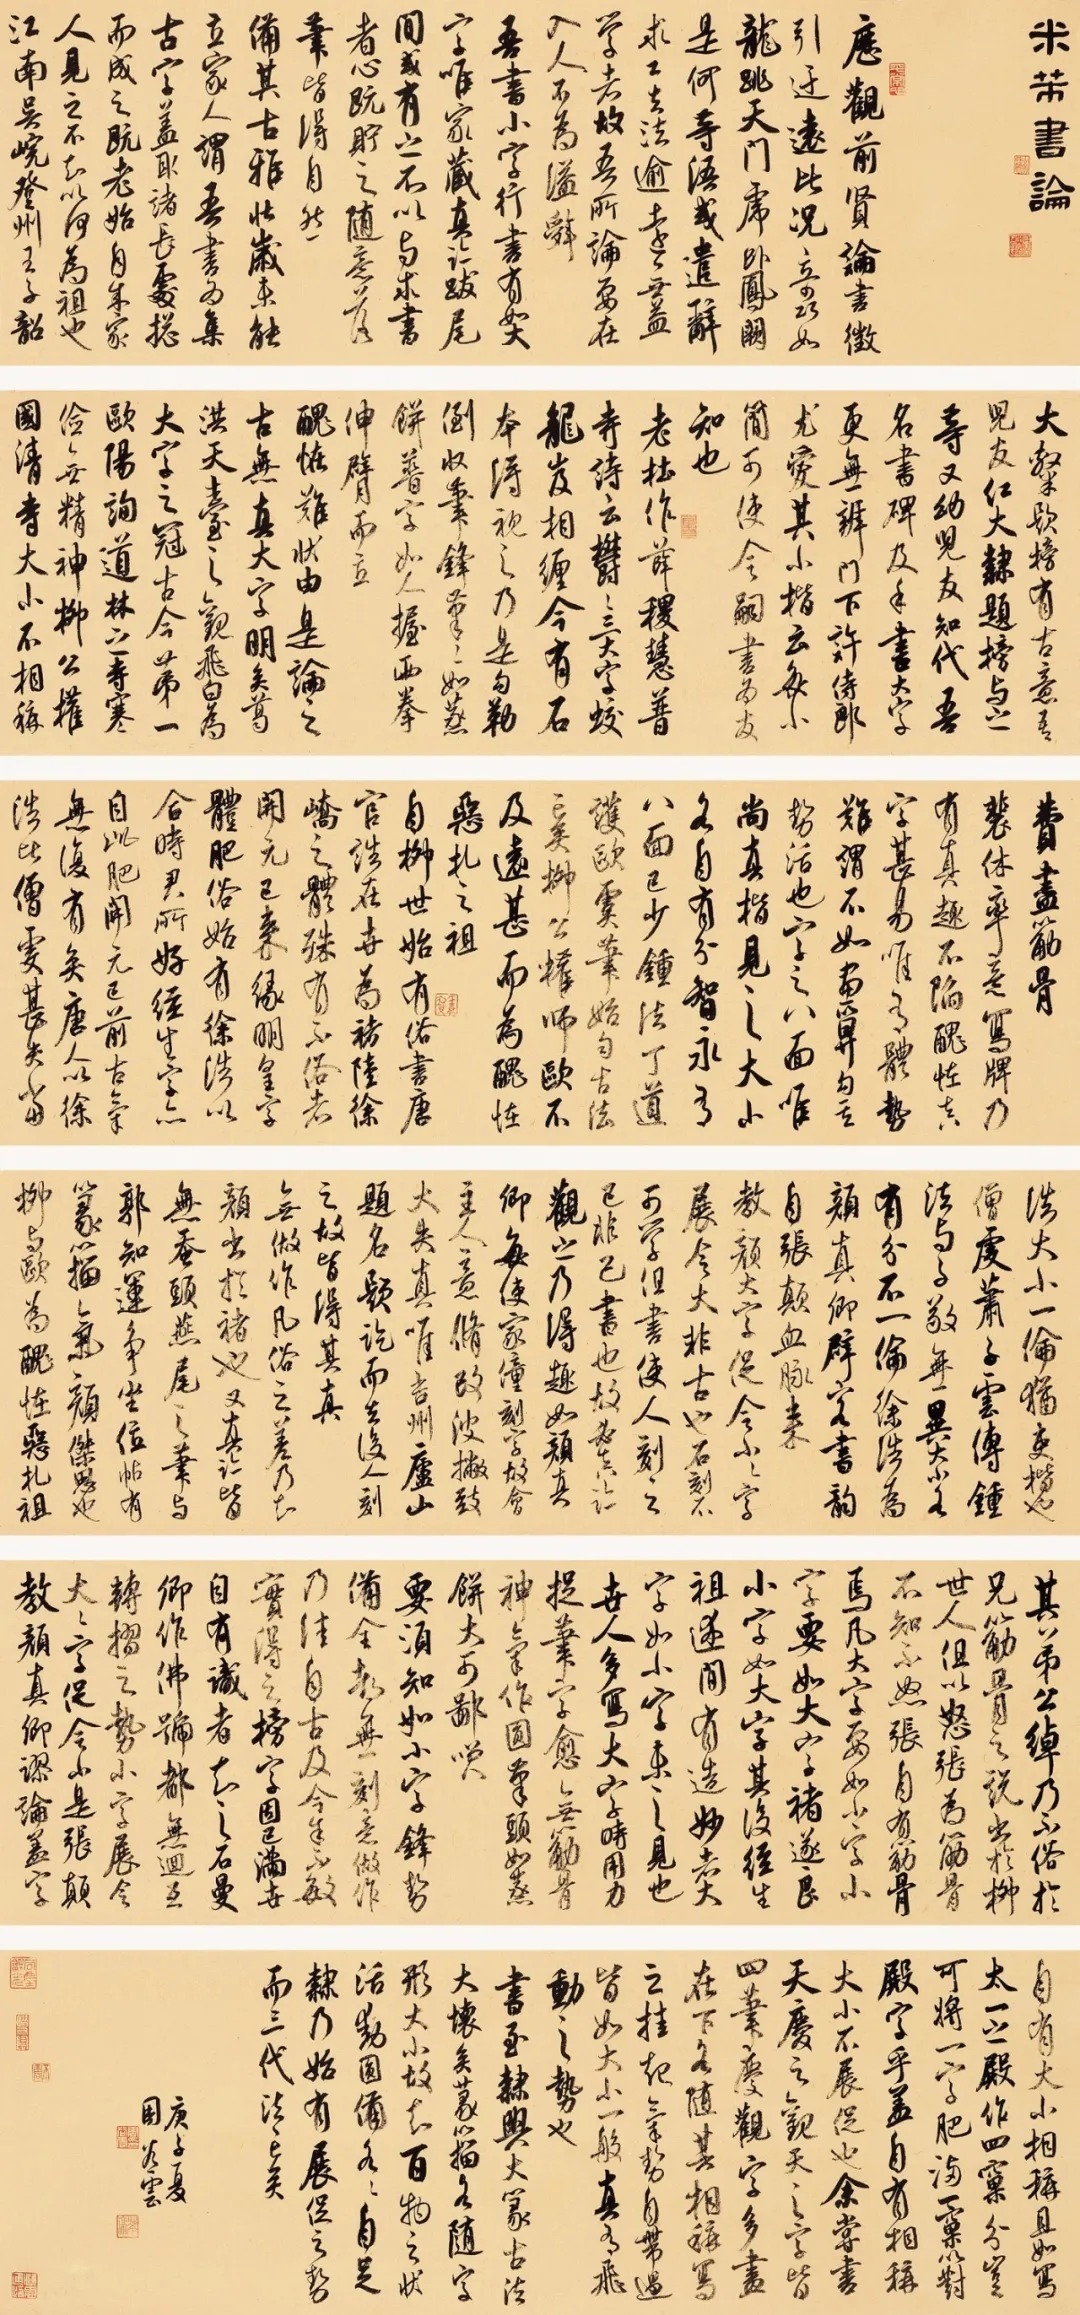 米芾書論
歷觀前賢論書徵
引迂遠比況奇巧如
龍跳天門虎卧鳳闕
是何等語或遣辭
求工去法逾遠無益
學者故吾所論要在
入人不為溢辭
吾書小字行書有如大
字唯家藏真跡跋尾
間或有之不以與求書
者心既貯之隨意落
筆皆得自然
備其古雅壯歲未能
立家人謂吾書為集
古字蓋取諸長處總
而成之既老始自成家
人見之不知以何為祖也
江南吳峴登州王子韶
大隸題榜有古意吾
兒友仁大隸題榜與之
等又幼兒友知代吾
名書碑及手書大字
更無辨門下許侍郎
尤愛其小楷云每小
簡可使令嗣書為友
知也
老杜作薛稷慧普
寺詩云鬱鬱三大字蛟
龍岌相纏今有石
本得視之乃是勾勒
倒收筆鋒筆筆如蒸
餅普字如人握兩拳
伸臂而立
醜怪難狀由是論之
古無真大字明矣葛
洪天臺之觀飛白為
大字之冠古今第一
歐陽詢道林之寺寒
儉無精神柳公權
國清寺大小不相稱
費盡筋骨
裴休率意寫牌乃
有真趣不陷醜怪真
字甚易唯有體勢
難謂不如畫算勻其
勢活也字之八面唯
尚真楷見之大小
各自有分智永有
八面已少鍾法丁道
護歐虞筆始勻古法
亡矣柳公權師歐不
及遠甚而為醜怪
惡札之祖
自柳世始有俗書唐
官誥在世為褚陸徐
嶠之體殊有不俗者
開元已來緣明皇字
體肥俗始有徐浩以
合時君所好經生字亦
自此肥開元已前古氣
無復有矣唐人以徐
浩比僧虔甚失當
浩大小一倫猶吏楷也
僧虔蕭子雲傳鍾
法與子敬無異大小各
有分不一倫徐浩為
顏真卿辟客書韻
自張顛血脈來
教顏大字促令小小字
展令大非古也石刻不
可學但書使人刻之
已非己書也故必須真跡
觀之乃得趣如顏真
卿每使家僮刻字故會
主人意修改波撇致
大失真唯吉州廬山
題名題訖而去後人刻
之故皆得其真
無做作凡俗之差乃知
顏出於褚也又真跡皆
無蠶頭燕尾之筆與
郭知運爭坐位帖有
篆籀氣顏傑思也
柳與歐為醜怪惡札祖
其弟公綽乃不俗於
兄筋骨之說出於柳
世人但以怒張為筋骨
不知不怒張自有筋骨
焉凡大字要如小字小
字要如大字褚遂良
小字如大字其後經生
祖述間有造妙者大
字如小字未之見也
世人多寫大字時用力
捉筆字愈無筋骨
神氣作圓筆頭如蒸
餅大可鄙笑
要須知如小字鋒勢
備全都無刻意做作
乃佳自古及今余不敏
實得之榜字固已滿世
自有識者知之石曼
卿作佛號都無迴互
轉摺之勢小字展令
大大字促令小是張顛
教顏真卿謬論蓋字
自有大小相稱且如寫
太一之殿作四窠分豈
可將一字肥滿一窠以對
殿字乎蓋自有相稱
大小不展促也余嘗書
天慶之觀天之字皆
四筆慶觀字多畫
在下各隨其相稱寫
之挂起氣勢自帶過
皆如大小一般真有飛
動之勢也
書至隸興大篆古法
大壞矣篆籀各隨字
形大小故知百物之狀
活動圓備各各自足
隸乃始有展促之勢
而三代法亡矣
庚子夏